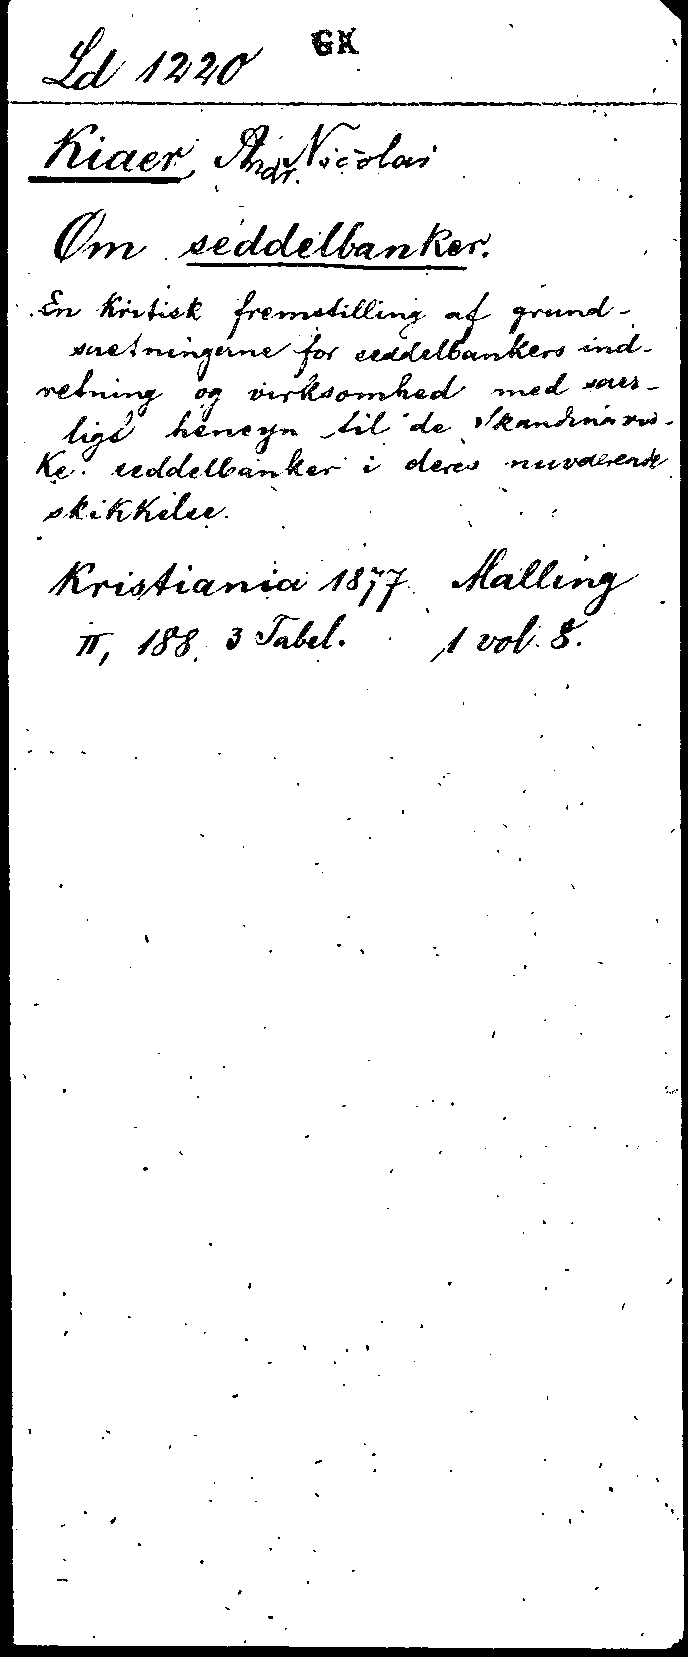 GK
Ld 1220
Kiaer, Andr. Nicolai
Om seddelbanker.
En kritisk fremstilling af grund-
saetningerne for seddelbankers ind-
retning og virksomhed med saer-
ligt hensyn til de Skandinavis-
ke seddelbanker i deres nuvaerende
skikkelse.
Kristiania 1877 Malling
II, 188, 3 Tabel. 1 vol. 8.